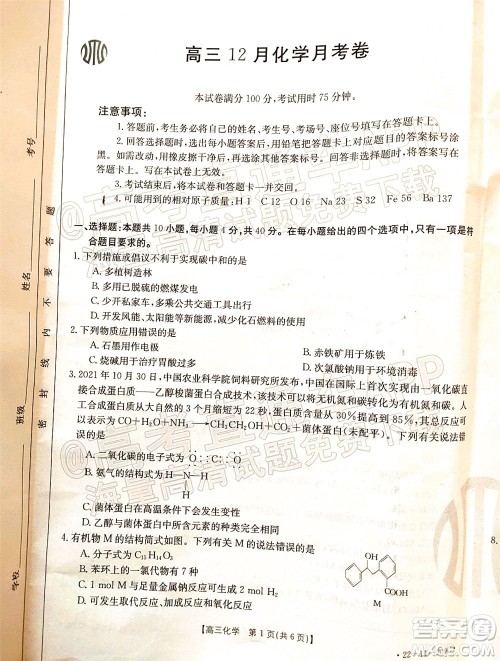 高三12月化学月考卷
本试卷满分100分,考试用时75分钟。
注意事项:
1.答题前,考生务必将自己的姓名、考生号、考场号、座位号填写在答题卡上。
2.回答选择题时,选出每小题答案后,用铅笔把答题卡上对应题目的答案标号涂
黑。如需改动,用橡皮擦干净后,再选涂其他答案标号。回答非选择题时,将答案写在
答题卡上。写在本试卷上无效。
3.考试结束后,将本试卷和答题卡一并交回。
4.可能用到的相对原子质量:H 1 C 12 N 14 O 16 Na 23 S 32 Fe 56 Ba 137
一、选择题:本题共10小题,每小题4分,共40分。在每小题给出的四个选项中,只有一项是符
合题目要求的。
1.下列措施或倡议不利于实现碳中和的是
A.多植树造林
B.多用已脱硫的燃煤发电
C.少用私家车,多乘公共交通工具出行
D.开发风能、太阳能等新能源,减少化石燃料的使用
2.下列物质应用错误的是
A.石墨用于绝缘材料
B.赤铁矿用于炼铁
C.烧碱用于治疗胃酸过多
D.次氯酸钠用于环境消毒
3.2021年10月30日,中国农业科学院饲料研究所发布,中国在国际上首次实现从一氧化碳直
接合成蛋白质——乙醇梭菌蛋白合成技术,该技术可以将无机氮和碳转化为有机氮和碳,将
蛋白质在植物中天然合成的3个周期缩短为22秒,菌体蛋白质含量从30%提高到85%。
其总反应可表示为CO+H₂O+NH₃→CH₃CH₂OH+菌体蛋白(未配平)。下列有关说法错
A.二氧化碳的电子式为 O::C::O
B.氨气的结构式为H—N—H
H
C.菌体蛋白在高温条件下会变性
D.乙醇与菌体蛋白的分离操作为蒸馏
4.有机物M的结构简式如图。下列有关M的说法错误的是
A.分子式为C₁₅H₁₄O₃
B.苯环上的一氯代物有7种
C.1 mol M与足量钠反应可生成2 mol H₂
D.可发生取代反应、氧化反应
OH
COOH
M
【高三化学 第1页(共6页)】
考号
姓名
班级
学校
密封线内不要答题
8.